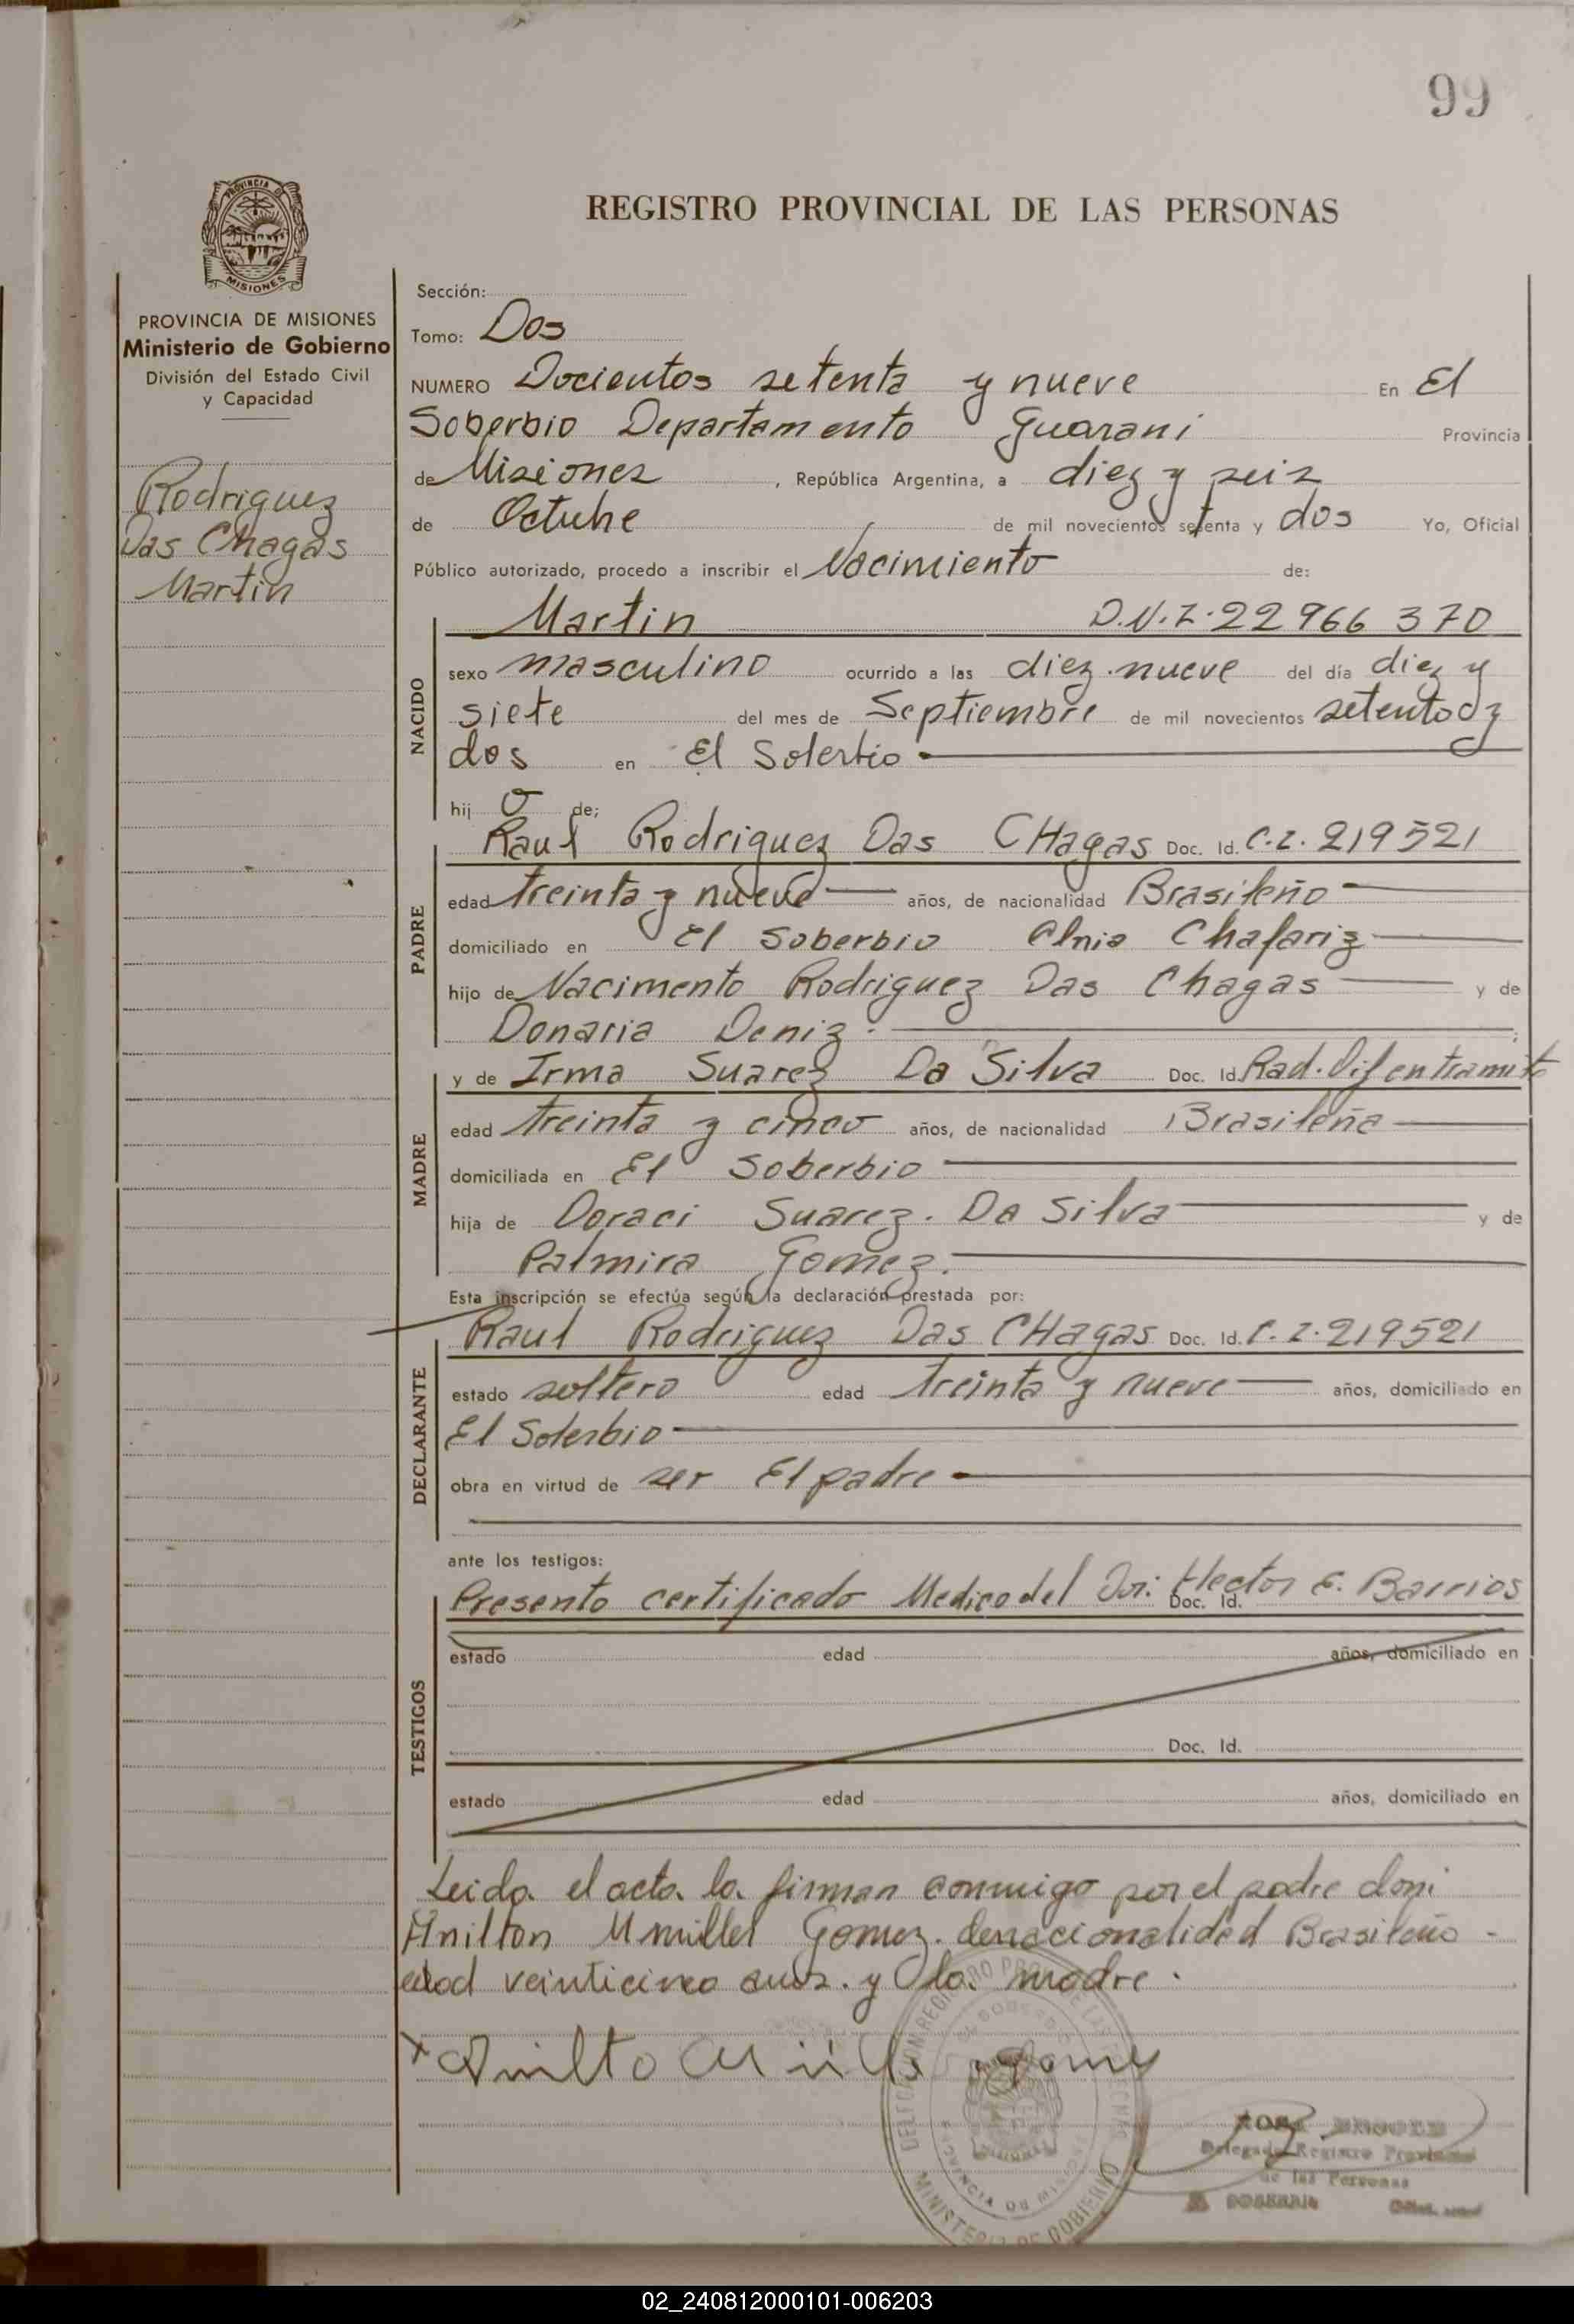 99
REGISTRO PROVINCIAL DE LAS PERSONAS
PROVINCIA DE MISIONES
Ministerio de Gobierno
División del Estado Civil
y Capacidad
Rodriguez
Das Chagas
Martin
Sección:
Tomo: Dos
NUMERO Docientos setenta y nueve En El
Soberbio Departamento Guarani Provincia
de Misiones, República Argentina, a diez y seis
de Octubre de mil novecientos setenta y dos Yo, Oficial
Público autorizado, procedo a inscribir el Nacimiento de:
NACIDO
Martin D.N.I. 22 966 370
sexo masculino ocurrido a las diez nueve del día diez y
siete del mes de Septiembre de mil novecientos setenta y
dos en El Soberbio
hij o de;
PADRE
Raul Rodriguez Das CHagas Doc. Id. C.I. 219521
edad treinta y nueve años, de nacionalidad Brasileño
domiciliado en El Soberbio Chafariz
hijo de Nacimento Rodriguez Das Chagas y de
Donaria Deniz
MADRE
y de Irma Suarez Da Silva Doc. Id. Rad. Dif en tramite
edad treinta y cinco años, de nacionalidad Brasileña
domiciliada en El Soberbio
hija de Doraci Suarez. Da Silva y de
Palmira Gomez.
Esta inscripción se efectúa según la declaración prestada por:
DECLARANTE
Raul Rodriguez Das CHagas Doc. Id. C.I. 219521
estado soltero edad treinta y nueve años, domiciliado en
El Soberbio
obra en virtud de ser El padre
ante los testigos:
TESTIGOS
Presento certificado Medico del Dr: Hector E. Barrios
Doc. Id.
estado edad años, domiciliado en
Doc. Id.
estado edad años, domiciliado en
Leida el acta la firman conmigo por el padre don:
Anilton Gomez. de nacionalidad Brasileño -
edad veinticinco y la madre.
Delegado Registro Provincial
de las Personas
MINISTERIO DE GOBIERNO
PROVINCIA DE MISIONES
02_240812000101-006203